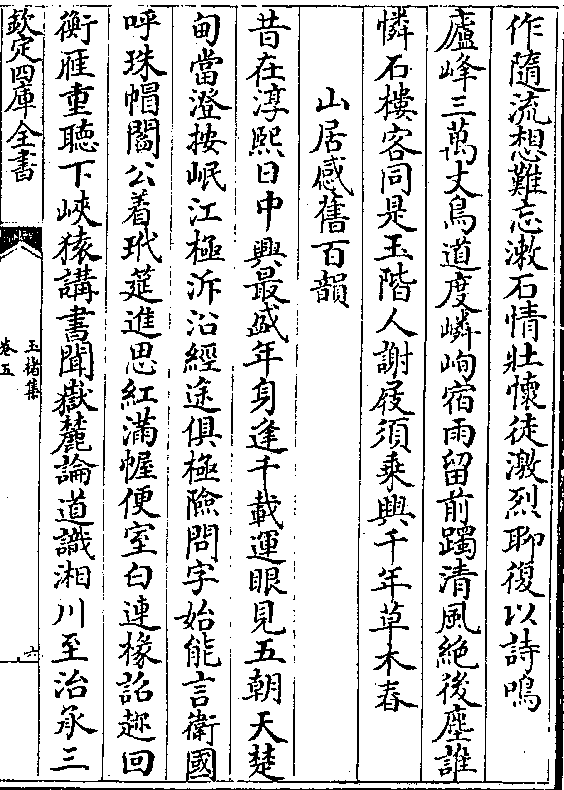 作隨流想難忘漱石情壯懷徒激烈聊復以詩鳴
廬峰三萬丈鳥道度嶙峋宿雨留前躅清風絶後塵誰
憐石樓客同是玉階人謝屐須乘興千年草木春
山居感舊百韻
昔在淳熙日中興最盛年身逢千載運眼見五朝天楚
甸當澄按岷江極泝沿經途俱極險問字始能言衛國
呼珠帽閻公着玳筵進思紅滿幄便室白連椽詔趣回
衡雁重聽下峽猿講書聞嶽麓論道識湘川至治承三
欽定四庫全書
玉楮集
卷五
六